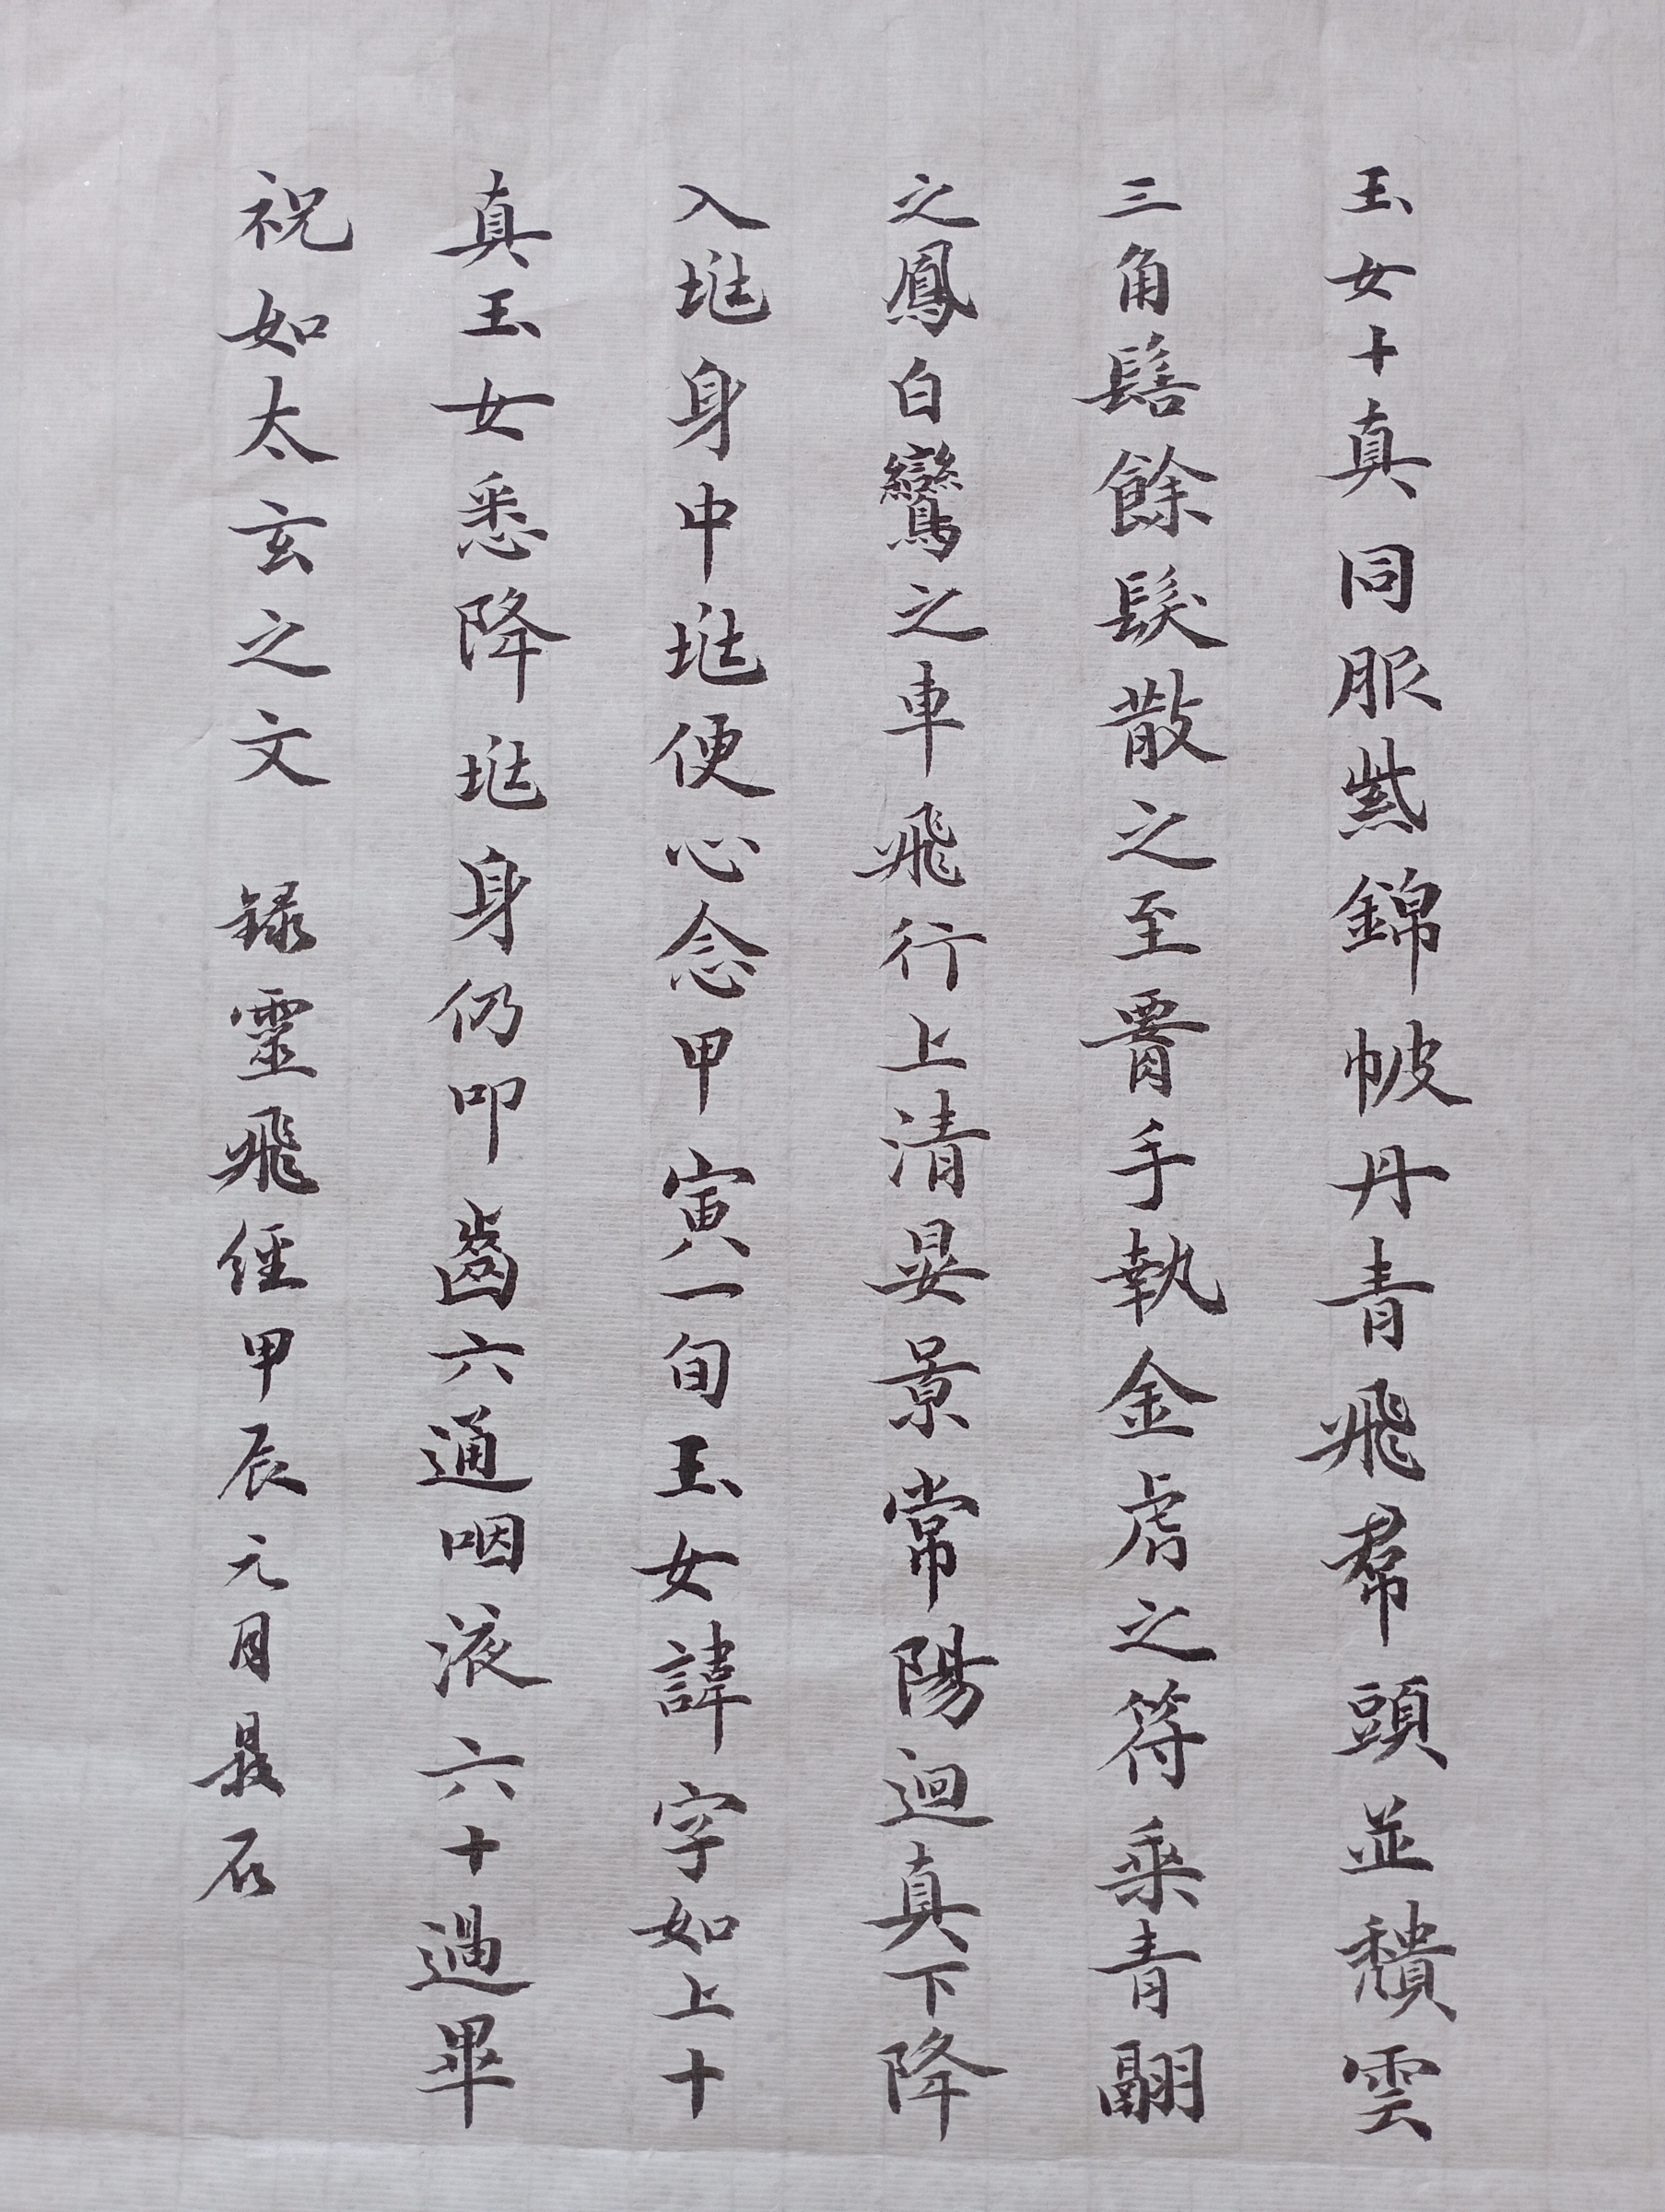 玉女十真同服紫錦帔丹青飛帬頭並穨雲
三角髻餘髮散之至署手執金虎之符乘青翮
之鳳白鸞之車飛行上清晏景常陽迴真下降
入㘴身中㘴便心念甲寅一旬玉女諱字如上十
真玉女悉降㘴身仍叩齒六通咽液六十過畢
祝如太玄之文 錄靈飛經甲辰元月 石